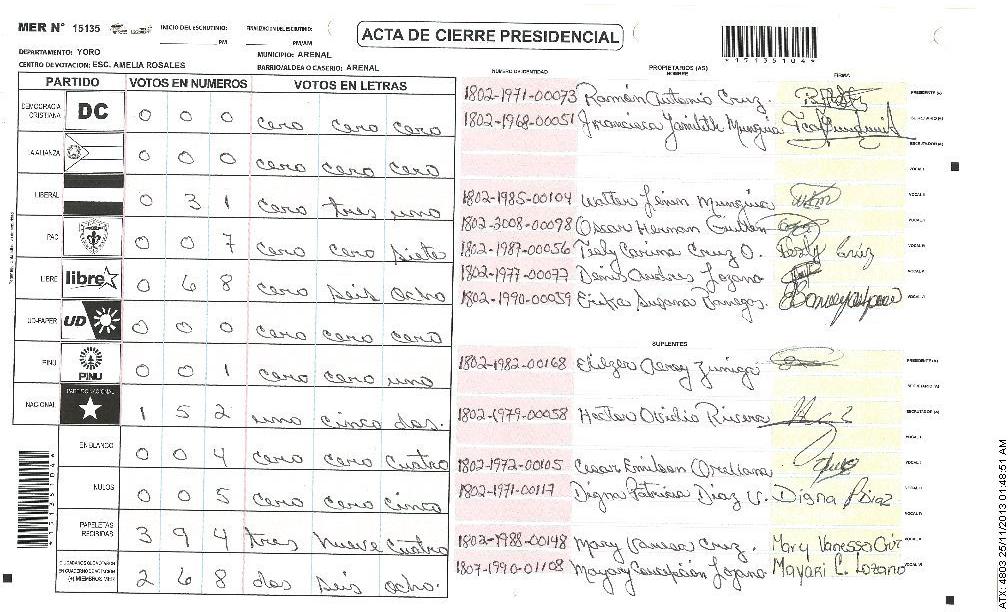 MER N° 15135 INICIO DEL ESCRUTINIO: PM FINALIZACION DEL ESCRUTINIO: PM/AM
ACTA DE CIERRE PRESIDENCIAL
*1513510 4*
DEPARTAMENTO: YORO MUNICIPIO: ARENAL
CENTRO DE VOTACION: ESC. AMELIA ROSALES BARRIO/ALDEA O CASERIO: ARENAL
PARTIDO VOTOS EN NUMEROS VOTOS EN LETRAS
DEMOCRACIA CRISTIANA DC 0 0 0 cero cero cero
LA ALIANZA 0 0 0 cero cero cero
LIBERAL 0 3 1 cero tres uno
PAC 0 0 7 cero cero siete
LIBRE libre 0 6 8 cero seis ocho
UD-FAPER UD 0 0 0 cero cero cero
PINU PINU 0 0 1 cero cero uno
NACIONAL PARTIDO NACIONAL 1 5 2 uno cinco dos.
EN BLANCO 0 0 4 cero cero cuatro
NULOS 0 0 5 cero cero cinco
PAPELETAS RECIBIDAS 3 9 4 tres nueve cuatro
CIUDADANOS QUE VOTARON EN CUADERNO DE VOTACION (+) MIEMBROS MER 2 6 8 dos seis ocho.
NUMERO DE IDENTIDAD PROPIETARIOS (AS) NOMBRE FIRMA
1802-1971-00073 Ramón Antonio Cruz. PRESIDENTE (A)
1802-1968-00051 Francisca Yamileth Munguia SECRETARIO (A)
ESCRUTADOR (A)
VOCAL I
1802-1985-00104 Walter Lenin Munguia VOCAL II
1802-2008-00098 Oscar Herman Guillen VOCAL III
1802-1987-00056 Tesly Carina Cruz O. Tesly Cruz VOCAL IV
1802-1977-00077 Denis Andres Lozano VOCAL V
1802-1990-00059 Erika Susana Banegas. VOCAL VI
SUPLENTES
1802-1982-00168 Zuniga PRESIDENTE (A)
SECRETARIO (A)
1802-1979-00058 Hector Ovidio Rivera ESCRUTADOR (A)
VOCAL I
1802-1972-00105 Cesar Emilson Orellana VOCAL II
1802-1971-00117 Digna Patricia Diaz V. Digna P Diaz VOCAL III
VOCAL IV
1802-1988-00148 Mary Vanessa Cruz. Mary Vanessa Cruz VOCAL V
1807-1990-01108 Mayary Concepción Lozano Mayari C. Lozano VOCAL VI
ATX: 4803 25/11/2013 01:48:51 AM